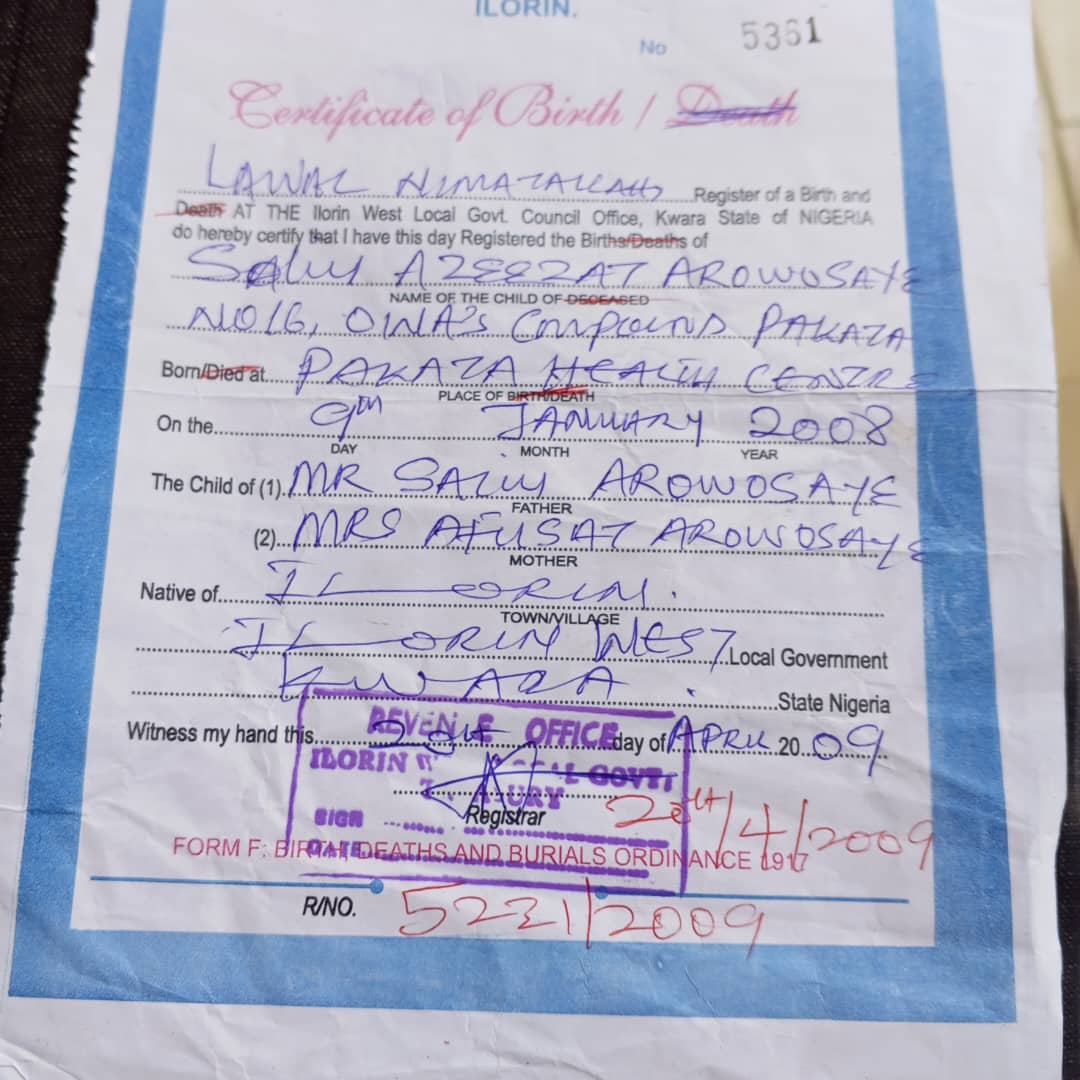 ILORIN.
No 5361
Certificate of Birth / Death
LAWAL NIMATALLAH Register of a Birth and
Death AT THE Ilorin West Local Govt. Council Office, Kwara State of NIGERIA
do hereby certify that I have this day Registered the Births/Deaths of
SALIU AZEEZAT AROWOSAYE
NAME OF THE CHILD OF DECEASED
NO16, OINA'S COMPOUND PAKATA
Born/Died at PAKATA HEALTH CENTRE
PLACE OF BIRTH/DEATH
On the 9TH JANUARY 2008
DAY MONTH YEAR
The Child of (1) MR SALIU AROWOSAYE
FATHER
(2) MRS AFUSAT AROWOSAYE
MOTHER
Native of ILORIN.
TOWN/VILLAGE
ILORIN WEST Local Government
KWARA State Nigeria
Witness my hand this 20th day of APRIL 2009
REVENUE OFFICE
ILORIN W LOCAL GOVT.
Registrar 20th/4/2009
SIGN
DATE
FORM F: BIRTH, DEATHS AND BURIALS ORDINANCE 1917
R/NO. 5221/2009